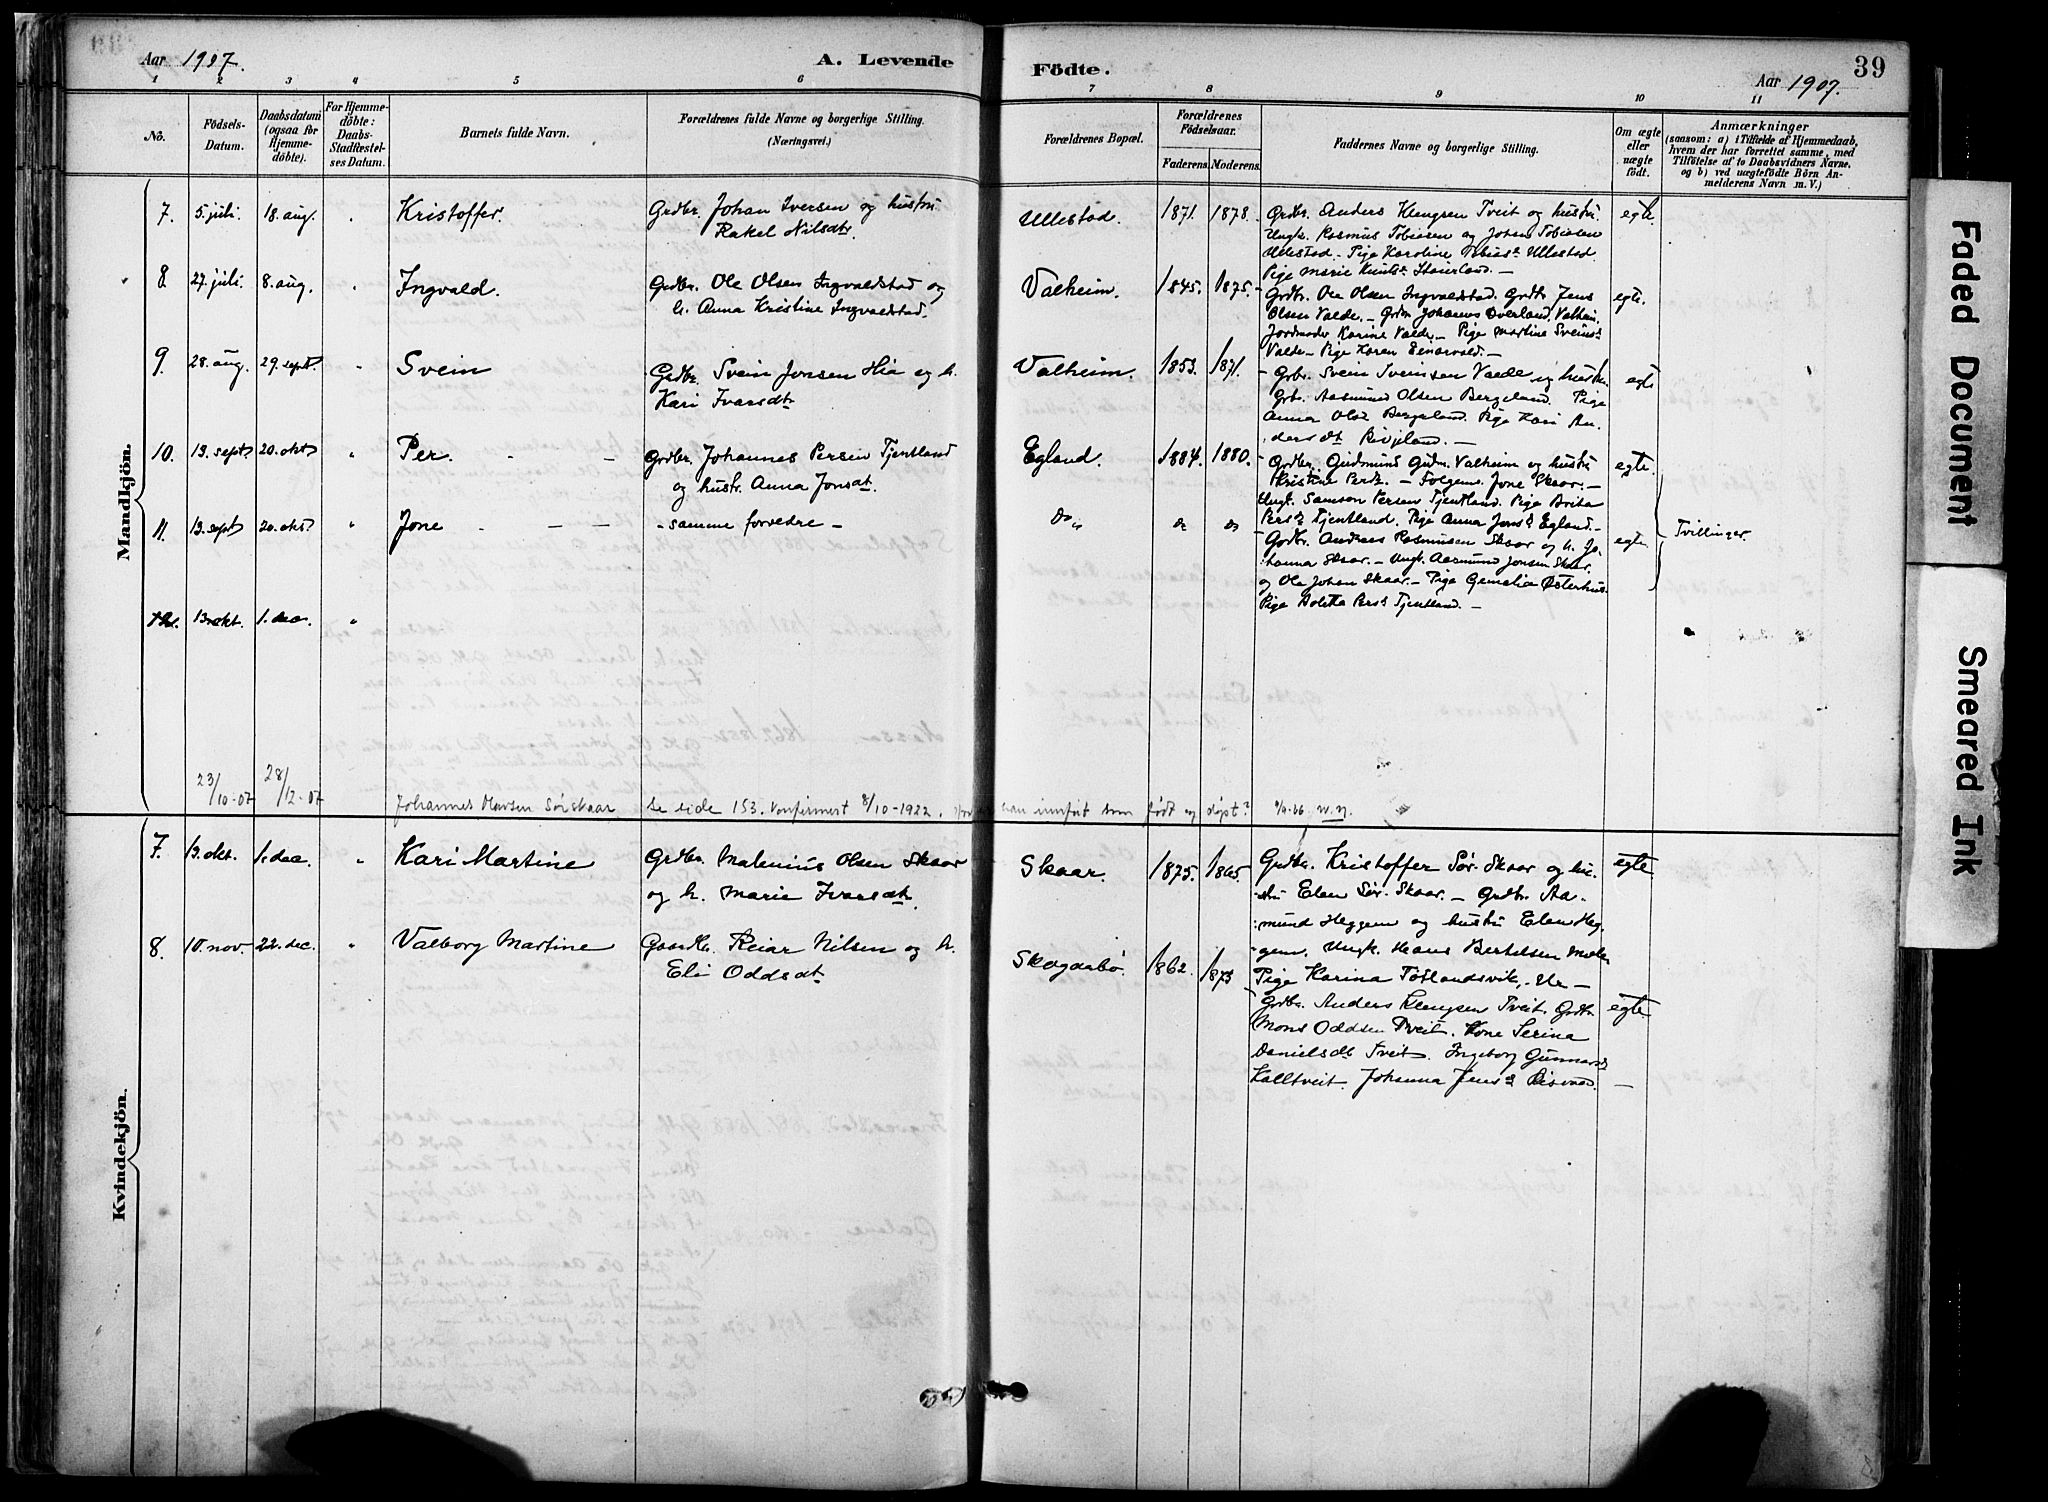 Aar 1907. A. Levende Födte. 39
Aar 1907.
1 2 3 4 5 6 7 8 9 10 11
No.
Födsels-Datum.
Daabsdatum (ogsaa for Hjemme-döbte).
For Hjemme-döbte: Daabs-Stadfæstel-ses Datum.
Barnets fulde Navn.
Forældrenes fulde Navne og borgerlige Stilling. (Næringsvei.)
Forældrenes Bopæl.
Forældrenes Födselsaar.
Faderens. Moderens.
Faddernes Navne og borgerlige Stilling.
Om ægte eller uægte födt.
Anmærkninger
(saasom: a) i Tilfælde af Hjemmedaab,
hvem der har forrettet samme, med
Tilföielse af to Daabsvidners Navne,
og b) ved uægtefödte Börn An-
melderens Navn m. V.)
Mandkjön.
7. 5. juli. 18. aug. " Kristoffer. Grdbr. Johan Iversen og hustru
Rakel Nilsdtr.
Ullestad. 1871. 1878.
Grdbr. Anders Klengsen Tveit og hustru.
Ungk. Rasmus Tobiasen og Johan Tobiasen
Ullestad. Pige Karoline Tobiasd. Ullestad.
Pige Marie Knutsd.
egte.
8. 27. juli. 8. aug. " Ingvald. Grdbr. Ole Olsen Ingvaldstad og
h. Anna Kristine Ingvaldstad.
Valheim. 1845. 1875.
Grdbr. Ole Olsen Ingvaldstad. Grdbr. Jens
Olsen Valde. - Johannes Overland, Valheim.
Jordmoder Karine Valde. - Pige Martine Sveinsd.
Valde - Pige Karen
egte.
9. 28. aug. 29. sept. " Svein Grdbr. Svein Jonsen Hia og h.
Kari Ivarsdtr
Valheim. 1853. 1871.
Grbr. Svein Sveinsen Valde og hustru.
Grbr. Aasmund Olsen Bergeland. Pige
Anna Olsd. Bergeland. Pige Kari An-
dersdt
egte
10. 13. sept. 20. okt. " Per. - - Grdbr. Johannes Persen Tjentland
og hustr. Anna Jonsdt.
Egland. 1884. 1880.
Grdbr. Gudmund Gudm. Valheim og hustru
Kristine - Folgem. Jone Skaar. -
Ungk. Samson Persen Tjentland. Pige Brita
Persd. Tjentland. Pige Anna Jonsd. Egland. -
egte.
11. 13. sept. 20. okt. " Jone - - - - samme forældre -
Do do do
Grdbr. Andreas Rasmusen Skaar og h. Jo-
hanna Skaar. - Ungk. Aasmund Jonsen Skaar.
og Ole Johan Skaar. - Pige Gemalia Østerhus.
Pige Persd. Tjentland. -
egte. Tvillinger.
12. 13. okt. 1. dec. "
23/10-07 28/12-07 Johannes Olavsen Sørskaar Se side 153. Konfirmert 8/10-1922. innført som født og døpt?
Kvindekjön.
7. 13. okt. 1. dec. " Kari Martine Grdbr. Malenius Olsen Skaar
og h. Marie Ivarsdtr.
Skaar. 1875. 1865.
Grdbr. Kristoffer Sør-Skaar og hu-
stru Elen Sør-Skaar. - Grdbr. Aa-
mund Heggem og hustru Elen Heg-
gem. Ungk. Hans Bertelsen
Pige Karina Tøtlandsvik.
egte
8. 10. nov. 22. dec. " Valborg Martine Gaardbr. Reiar Nilsen og h.
Eli Oddsdt
Skogabø. 1862. 1873
Grdbr. Anders Klengsen Tveit. Grdbr.
Mons Oddsen Tveit. Kone Serina
Danielsdt Tveit. Ingeborg Gunnarsd.
Kalltveit. Johanna Jensd.
egte
Faded Document
Smeared Ink